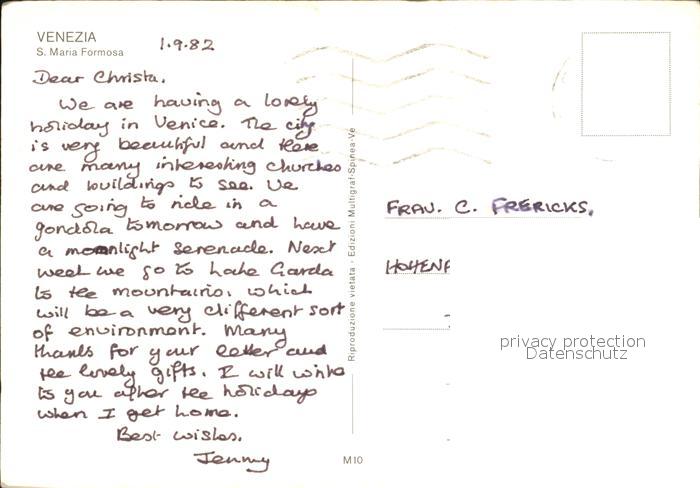 VENEZIA
S. Maria Formosa
1.9.82
Dear Christa.
We are having a lovely
holiday in Venice. The city
is very beautiful and there
are many interesting churches
and buildings to see. We
are going to ride in a
gondola tomorrow and have
a moonlight serenade. Next
week we go to Lake Garda
to the mountains, which
will be a very different sort
of environment. Many
thanks for your letter and
the lovely gifts. I will write
to you after the holidays
when I get home.
Best wishes.
Jenny
Riproduzione vietata - Edizioni Multigraf-Spinea-Ve
M10
FRAU. C. FRERICKS.
HOHENF
privacy protection
Datenschutz